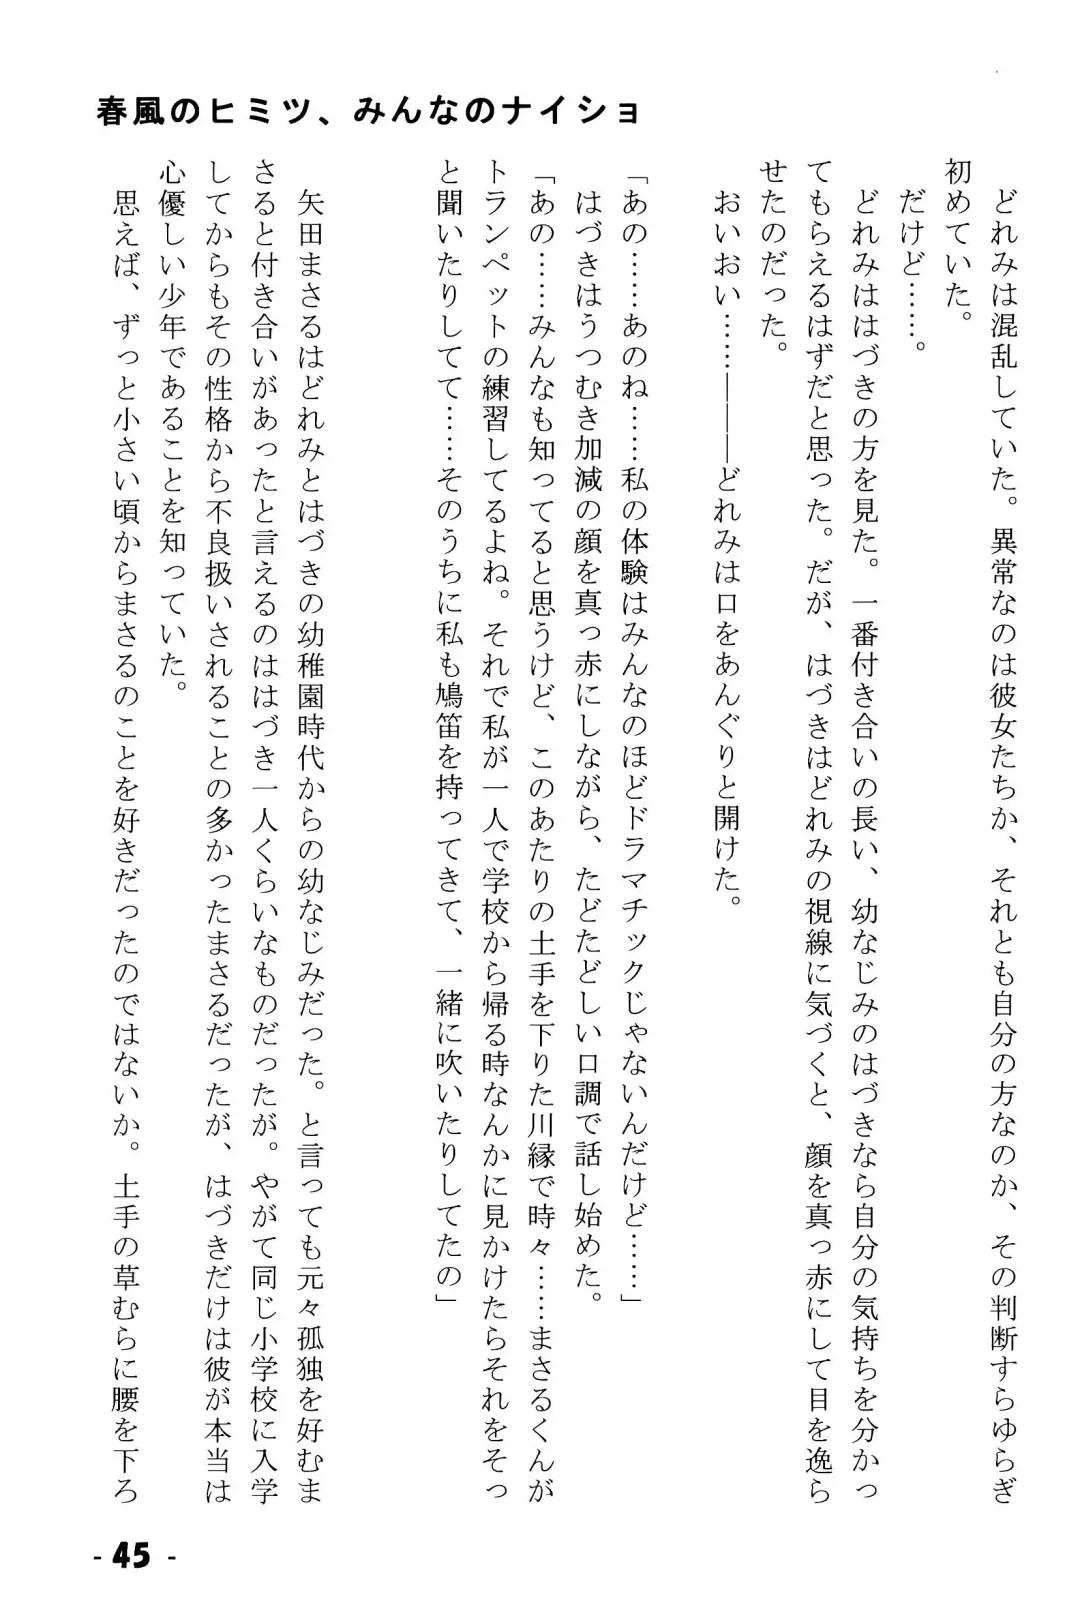 春風のヒミツ、みんなのナイショ
どれみは混乱していた。異常なのは彼女たちか、それとも自分の方なのか、その判断すらゆらぎ
初めていた。
だけど……。
どれみははづきの方を見た。一番付き合いの長い、幼なじみのはづきなら自分の気持ちを分かっ
てもらえるはずだと思った。だが、はづきはどれみの視線に気づくと、顔を真っ赤にして目を逸ら
せたのだった。
おいおい……―――どれみは口をあんぐりと開けた。
「あの……あのね……私の体験はみんなのほどドラマチックじゃないんだけど……」
はづきはうつむき加減の顔を真っ赤にしながら、たどたどしい口調で話し始めた。
「あの……みんなも知ってると思うけど、このあたりの土手を下りた川縁で時々……まさるくんが
トランペットの練習してるよね。それで私が一人で学校から帰る時なんかに見かけたらそれをそっ
と聞いたりしてて……そのうちに私も鳩笛を持ってきて、一緒に吹いたりしてたの」
矢田まさるはどれみとはづきの幼稚園時代からの幼なじみだった。と言っても元々孤独を好むま
さると付き合いがあったと言えるのははづき一人くらいなものだったが。やがて同じ小学校に入学
してからもその性格から不良扱いされることの多かったまさるだったが、はづきだけは彼が本当は
心優しい少年であることを知っていた。
思えば、ずっと小さい頃からまさるのことを好きだったのではないか。土手の草むらに腰を下ろ
- 45 -